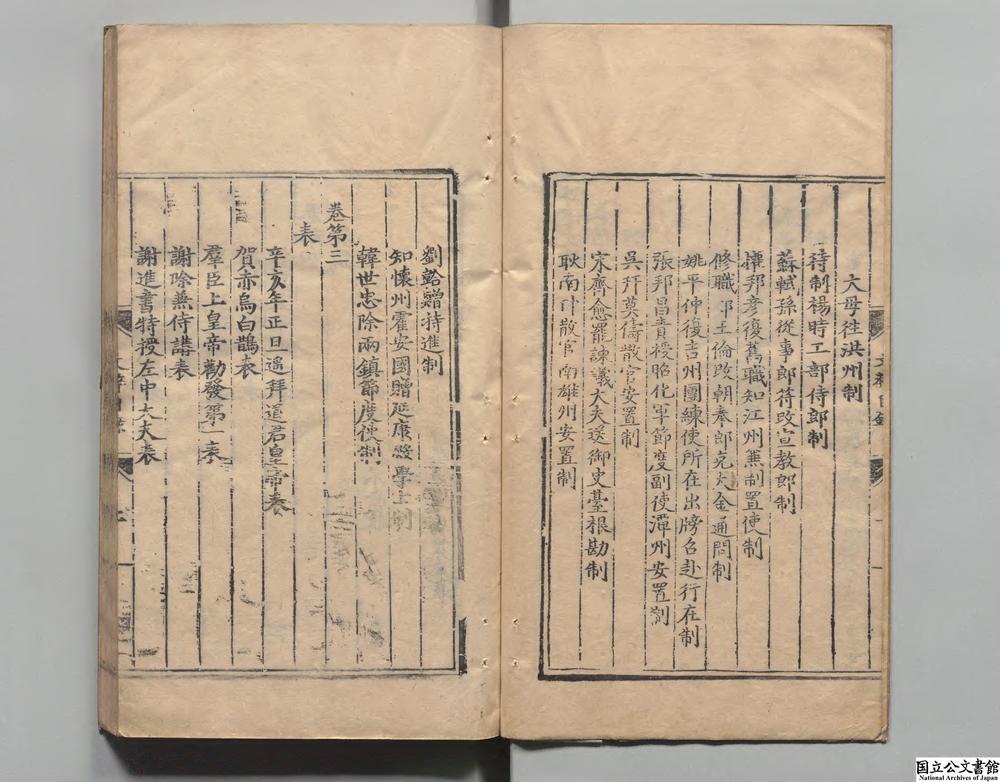 大母徃洪州制
待制楊時工部侍郎制
蘇軾孫從事郎符改宣教郎制
邦彦復舊職知江州兼制置使制
修職郎王倫改朝奉郎充大金通問制
姚平仲復吉州團練使所在出牓召赴行在制
張邦昌責授昭化軍節度副使潭州安置制
吳幵莫儔散官安置制
宋齊愈罷諫議大夫送御史臺根勘制
耿南仲散官南雄州安置制
劉韐贈特進制
知懷州霍安國贈延康殿學士制
韓世忠除兩鎮節度使制
卷第三
表
辛亥年正旦遥拜道君皇帝表
賀赤烏白鵲表
羣臣上皇帝勸發第一表
謝除兼侍講表
謝進書特授左中大夫表
国立公文書館
National Archives of Japan